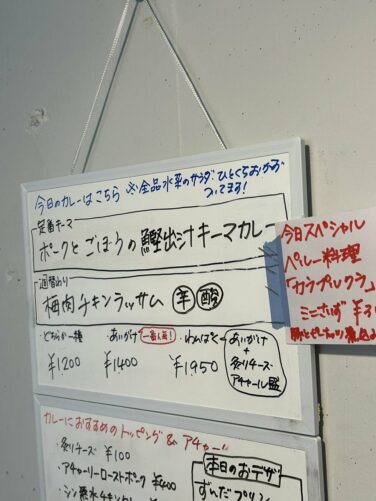 今日のカレーはこちら ※全品水菜のサラダ ひとくちおかず
ついてます!
定番キーマ
ポークとごぼうの鰹出汁キーマカレー
週替わり
梅肉チキンラッサム 辛 酸
・どちらか一種 ・あいがけ 一番人気! ・わんぱく
¥1200 ¥1400 ¥1950
あいがけ
+
炙りチーズ
アチャール盛
今日スペシャル
ペルー料理
「カラプルクラ」
ミニさいず
カレーにおすすめのトッピング & アチャール
・炙りチーズ ¥100
・アチャーリーローストポーク ¥400
本日のおデザ
ずんだプリン